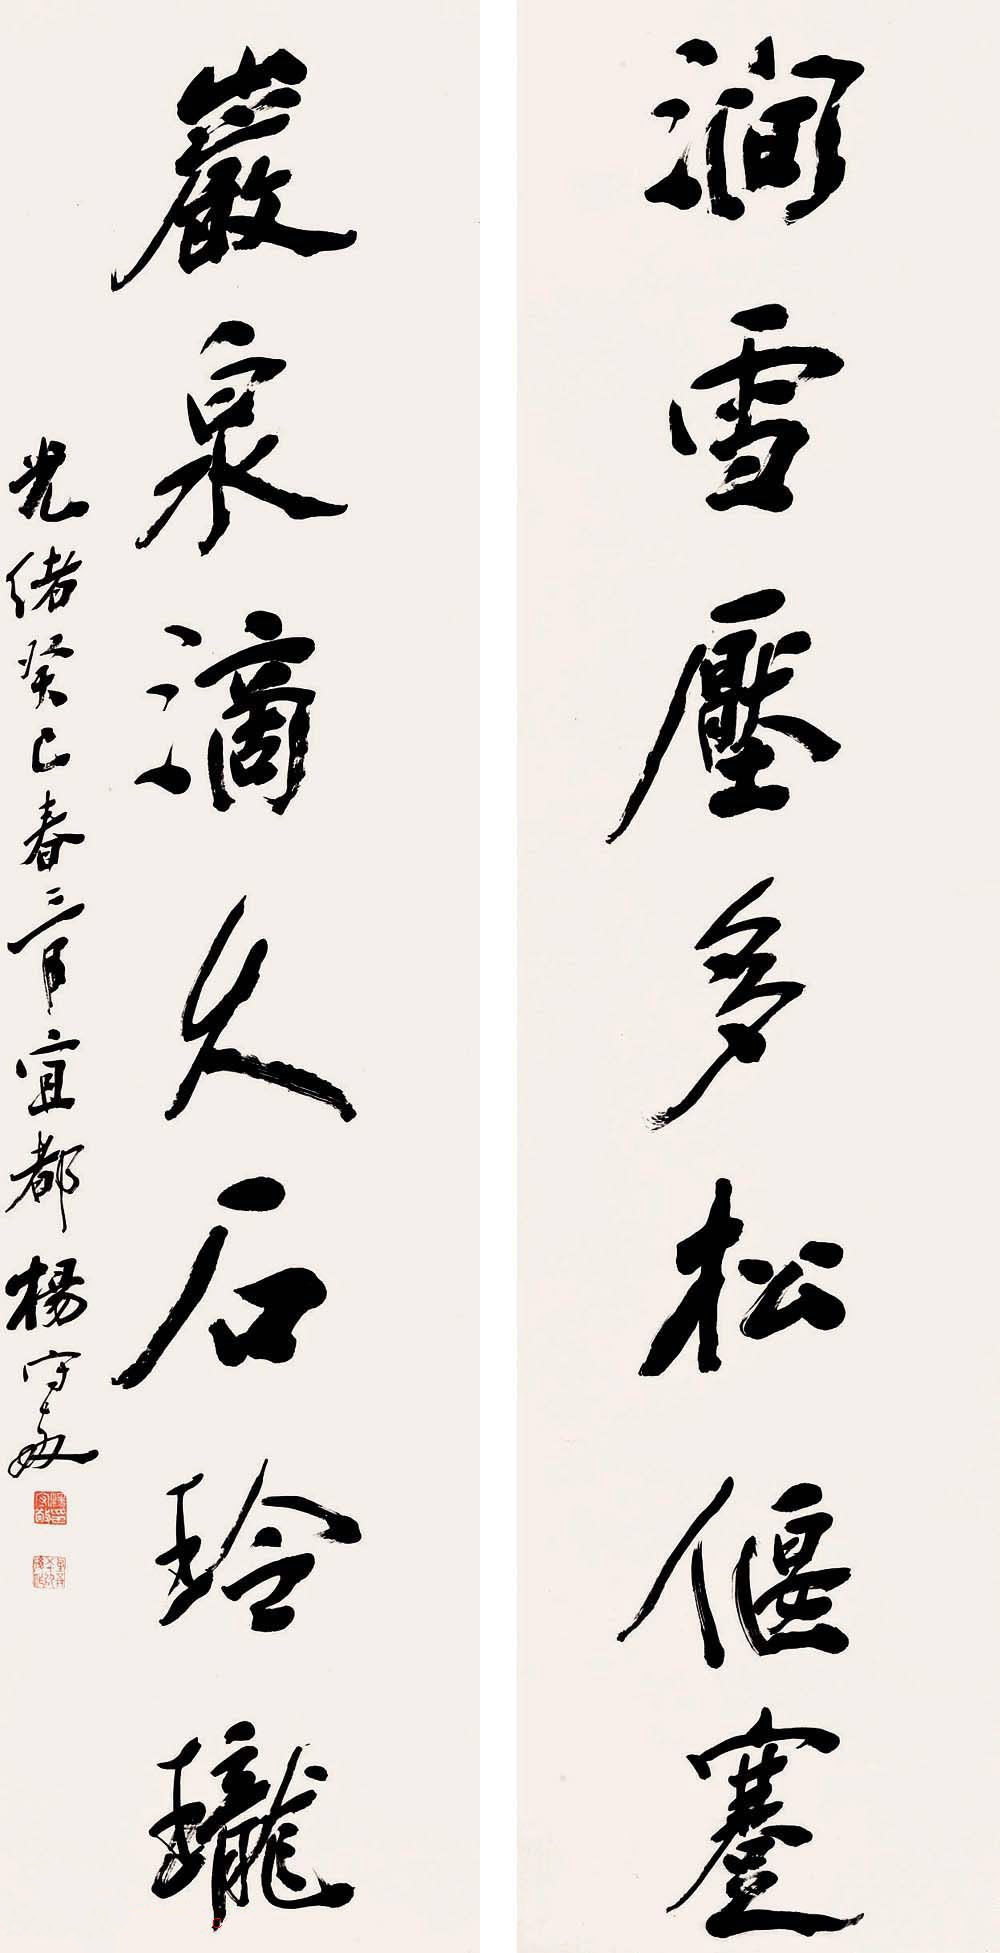 澗雪壓多松偃蹇
巖泉滴久石玲瓏
光緒癸巳春三月宜都楊守敬